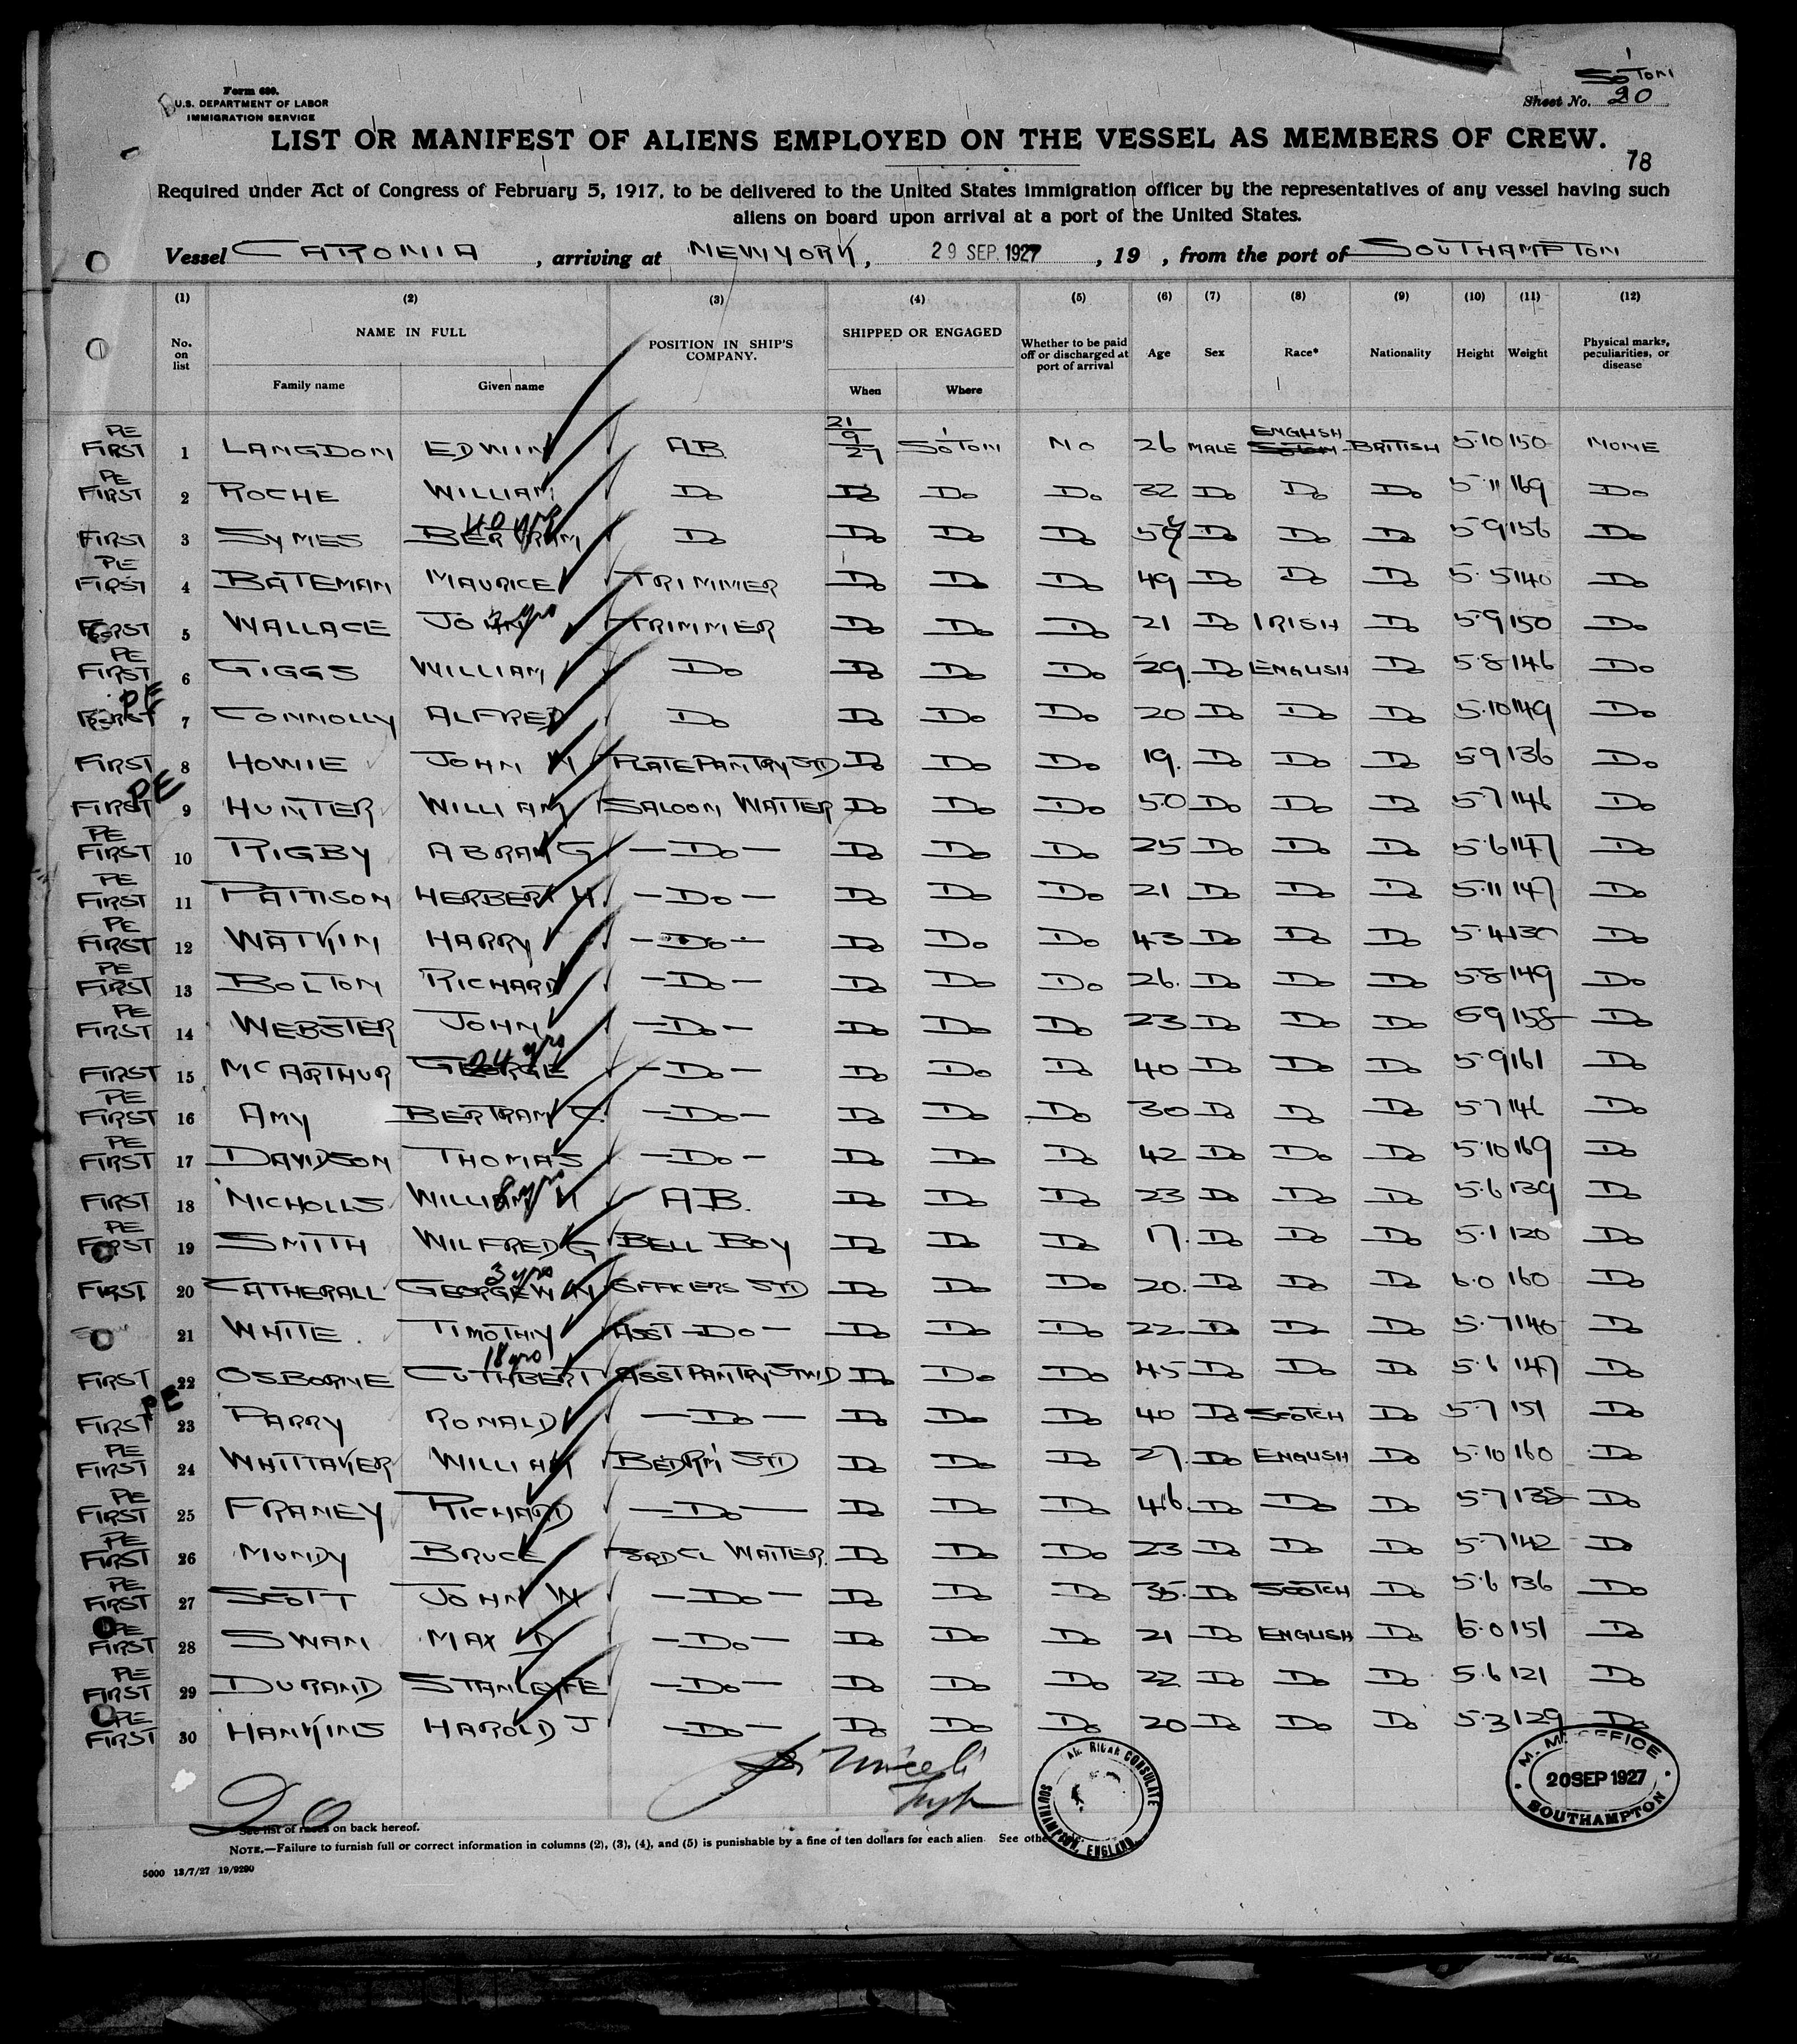 So'ton
Form 680.
U.S. DEPARTMENT OF LABOR
IMMIGRATION SERVICE
Sheet No. 20
LIST OR MANIFEST OF ALIENS EMPLOYED ON THE VESSEL AS MEMBERS OF CREW.
78
Required under Act of Congress of February 5, 1917, to be delivered to the United States immigration officer by the representatives of any vessel having such
aliens on board upon arrival at a port of the United States.
Vessel CARONIA, arriving at NEW YORK, 29 SEP. 1927, 19 , from the port of SOUTHAMPTON
(1) (2) (3) (4) (5) (6) (7) (8) (9) (10) (11) (12)
No. on list NAME IN FULL Family name Given name POSITION IN SHIP'S COMPANY. SHIPPED OR ENGAGED When Where Whether to be paid off or discharged at port of arrival Age Sex Race* Nationality Height Weight Physical marks, peculiarities, or disease
PE FIRST 1 LANGDON EDWIN A.B. 21 9 27 So'TON No 26 MALE ENGLISH BRITISH 5.10 150 NONE
PE FIRST 2 ROCHE WILLIAM Do Do Do Do 32 Do Do Do 5.11 169 Do
40 yrs
FIRST 3 SYMES BERTRAM Do Do Do Do Do Do Do 5.9 156 Do
PE FIRST 4 BATEMAN MAURICE TRIMMER Do Do Do 49 Do Do Do 5.5 140 Do
FIRST 5 WALLACE JOHN 3 yrs TRIMMER Do Do Do 21 Do IRISH Do 5.9 150 Do
PE FIRST 6 GIGGS WILLIAM Do Do Do Do 29 Do ENGLISH Do 5.8 146 Do
PE FIRST 7 CONNOLLY ALFRED Do Do Do Do 20 Do Do Do 5.10 149 Do
FIRST 8 HOWIE JOHN W PLATE PANTRY STD Do Do Do 19. Do Do Do 5.9 136 Do
PE FIRST 9 HUNTER WILLIAM SALOON WAITER Do Do Do 50 Do Do Do 5.7 146 Do
PE FIRST 10 RIGBY ABRAM G —Do— Do Do Do 25 Do Do Do 5.6 147 Do
PE FIRST 11 PATTISON HERBERT H. —Do— Do Do Do 21 Do Do Do 5.11 147 Do
PE FIRST 12 WATKIN HARRY —Do— Do Do Do 43 Do Do Do 5.4 130 Do
PE FIRST 13 BOLTON RICHARD —Do— Do Do Do 26. Do Do Do 5.8 149 Do
PE FIRST 14 WEBSTER JOHN —Do— Do Do Do 23 Do Do Do 5.9 158 Do
24 yrs
FIRST 15 McARTHUR GEORGE —Do— Do Do Do 40 Do Do Do 5.9 161 Do
PE FIRST 16 AMY BERTRAM C. —Do— Do Do Do 30 Do Do Do 5.7 146 Do
PE FIRST 17 DAVIDSON THOMAS —Do— Do Do Do 42 Do Do Do 5.10 169 Do
FIRST 18 NICHOLLS WILLIAM H A.B. Do Do Do 23 Do Do Do 5.6 139 Do
PE FIRST 19 SMITH WILFRED G BELL BOY Do Do Do 17. Do Do Do 5.1 120 Do
3 yrs
FIRST 20 CATHERALL GEORGE W OFFICERS STD Do Do Do 20. Do Do Do 6.0 160 Do
21 WHITE. TIMOTHY ASST —Do— Do Do Do 22 Do Do Do 5.7 140 Do
18 yrs
FIRST 22 OSBORNE CUTHBERT ASST PANTRY STWD Do Do Do 45 Do Do Do 5.6 147 Do
PE FIRST 23 PARRY RONALD —Do— Do Do Do 40 Do SCOTCH Do 5.7 151 Do
PE FIRST 24 WHITTAKER WILLIAM BEDRM STD Do Do Do 27. Do ENGLISH Do 5.10 160 Do
PE FIRST 25 FRANEY RICHARD —Do— Do Do Do 46. Do Do Do 5.7 138 Do
PE FIRST 26 MUNDY BRUCE 3RD CL WAITER. Do Do Do 23 Do Do Do 5.7 142 Do
PE FIRST 27 SCOTT JOHN W —Do— Do Do Do 35. Do SCOTCH Do 5.6 136 Do
PE FIRST 28 SWAN MAX D —Do— Do Do Do 21 Do ENGLISH Do. 6.0 151 Do
PE FIRST 29 DURAND STANLEY FE —Do— Do Do Do 22 Do Do Do 5.6 121 Do
PE FIRST 30 HANKINS HAROLD J —Do— Do Do Do 20 Do Do Do 5.3 129 Do
AMERICAN CONSULATE SOUTHAMPTON, ENGLAND.
M. M. OFFICE 20 SEP 1927 SOUTHAMPTON
20
See list of races on back hereof.
NOTE.—Failure to furnish full or correct information in columns (2), (3), (4), and (5) is punishable by a fine of ten dollars for each alien. See other
5000 13/7/27 19/9290